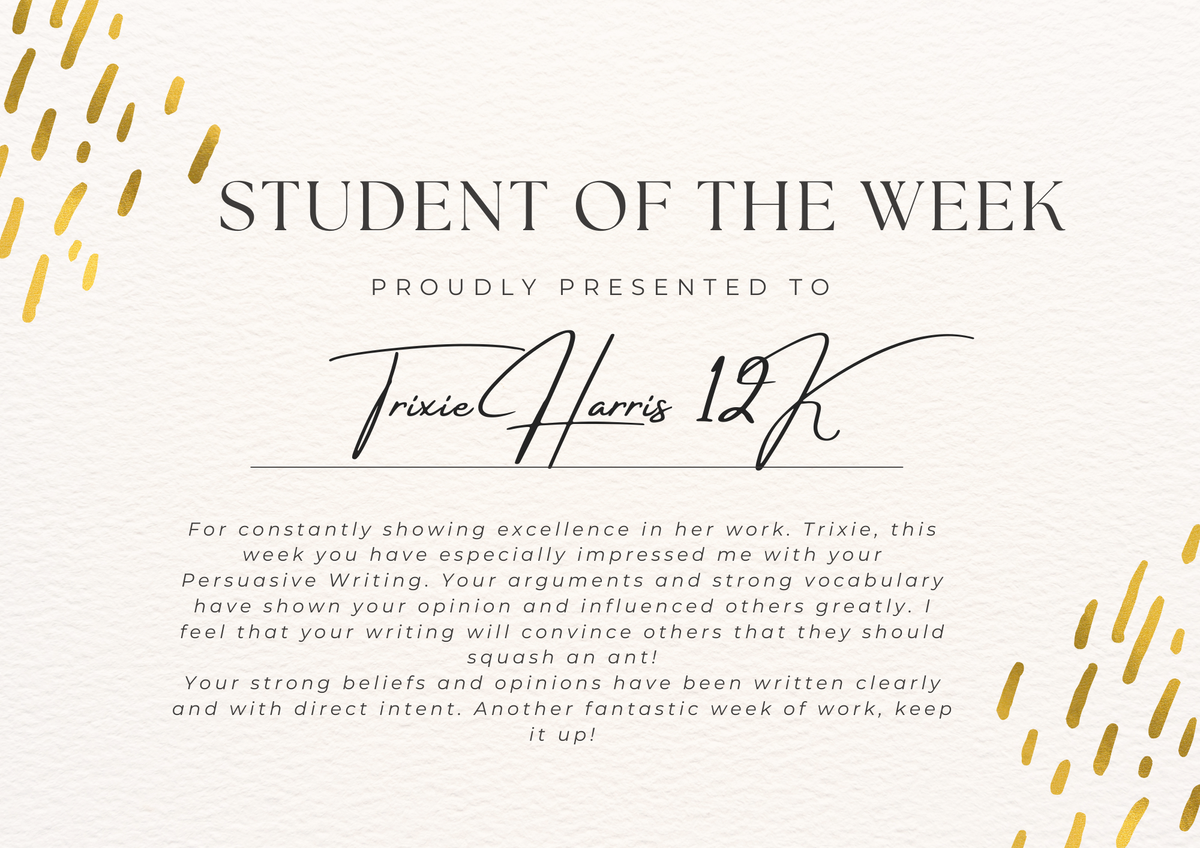 STUDENT OF THE WEEK
PROUDLY PRESENTED TO
Trixie Harris 12K
For constantly showing excellence in her work. Trixie, this
week you have especially impressed me with your
Persuasive Writing. Your arguments and strong vocabulary
have shown your opinion and influenced others greatly. I
feel that your writing will convince others that they should
squash an ant!
Your strong beliefs and opinions have been written clearly
and with direct intent. Another fantastic week of work, keep
it up!